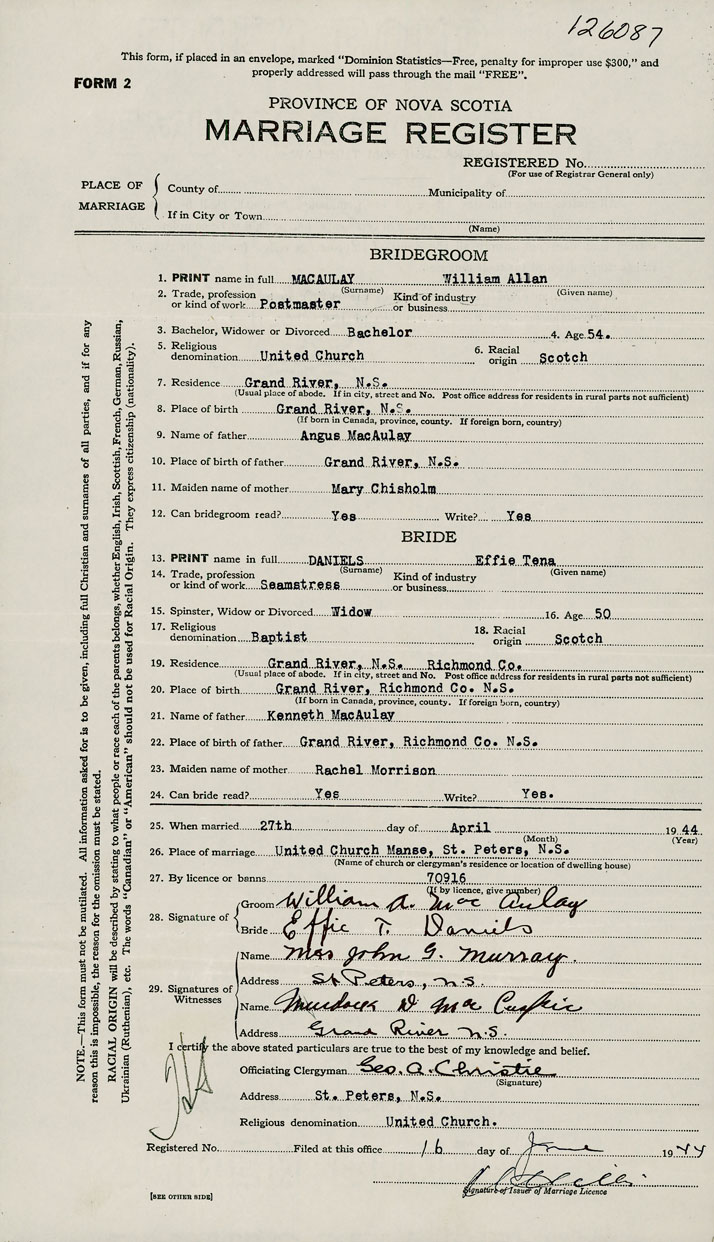 126087
This form, if placed in an envelope, marked "Dominion Statistics—Free, penalty for improper use $300," and
properly addressed will pass through the mail "FREE".
FORM 2
PROVINCE OF NOVA SCOTIA
MARRIAGE REGISTER
REGISTERED No.
(For use of Registrar General only)
PLACE OF MARRIAGE
County of Municipality of
If in City or Town
(Name)
BRIDEGROOM
1. PRINT name in full MACAULAY William Allan
(Surname) (Given name)
2. Trade, profession or kind of work Postmaster Kind of industry or business
3. Bachelor, Widower or Divorced Bachelor 4. Age 54.
5. Religious denomination United Church 6. Racial origin Scotch
7. Residence Grand River, N.S.
(Usual place of abode. If in city, street and No. Post office address for residents in rural parts not sufficient)
8. Place of birth Grand River, N.S.
(If born in Canada, province, county. If foreign born, country)
9. Name of father Angus MacAulay
10. Place of birth of father Grand River, N.S.
11. Maiden name of mother Mary Chisholm
12. Can bridegroom read? Yes Write? Yes
BRIDE
13. PRINT name in full DANIELS Effie Tena
(Surname) (Given name)
14. Trade, profession or kind of work Seamstress Kind of industry or business
15. Spinster, Widow or Divorced Widow 16. Age 50
17. Religious denomination Baptist 18. Racial origin Scotch
19. Residence Grand River, N.S. Richmond Co.
(Usual place of abode. If in city, street and No. Post office address for residents in rural parts not sufficient)
20. Place of birth Grand River, Richmond Co. N.S.
(If born in Canada, province, county. If foreign born, country)
21. Name of father Kenneth MacAulay
22. Place of birth of father Grand River, Richmond Co. N.S.
23. Maiden name of mother Rachel Morrison
24. Can bride read? Yes Write? Yes.
25. When married 27th day of April 1944
(Month) (Year)
26. Place of marriage United Church Manse, St. Peters, N.S.
(Name of church or clergyman's residence or location of dwelling house)
27. By licence or banns 70916
(If by licence, give number)
28. Signature of
Groom William A. MacAulay
Bride Effie T. Daniels
29. Signatures of Witnesses
Name Mrs John G. Murray.
Address St Peters, N.S.
Name Murdock D MacCuskic
Address Grand River N.S.
I certify the above stated particulars are true to the best of my knowledge and belief.
Officiating Clergyman Geo. A. Christie
(Signature)
Address St. Peters, N.S.
Religious denomination United Church.
Registered No. Filed at this office 16 day of June 1944
Signature of Issuer of Marriage Licence
[SEE OTHER SIDE]
NOTE.—This form must not be mutilated. All information asked for is to be given, including full Christian and surnames of all parties, and if for any
reason this is impossible, the reason for the omission must be stated.
RACIAL ORIGIN will be described by stating to what people or race each of the parents belongs, whether English, Irish, Scottish, French, German, Russian,
Ukrainian (Ruthenian), etc. The words "Canadian" or "American" should not be used for Racial Origin. They express citizenship (nationality).